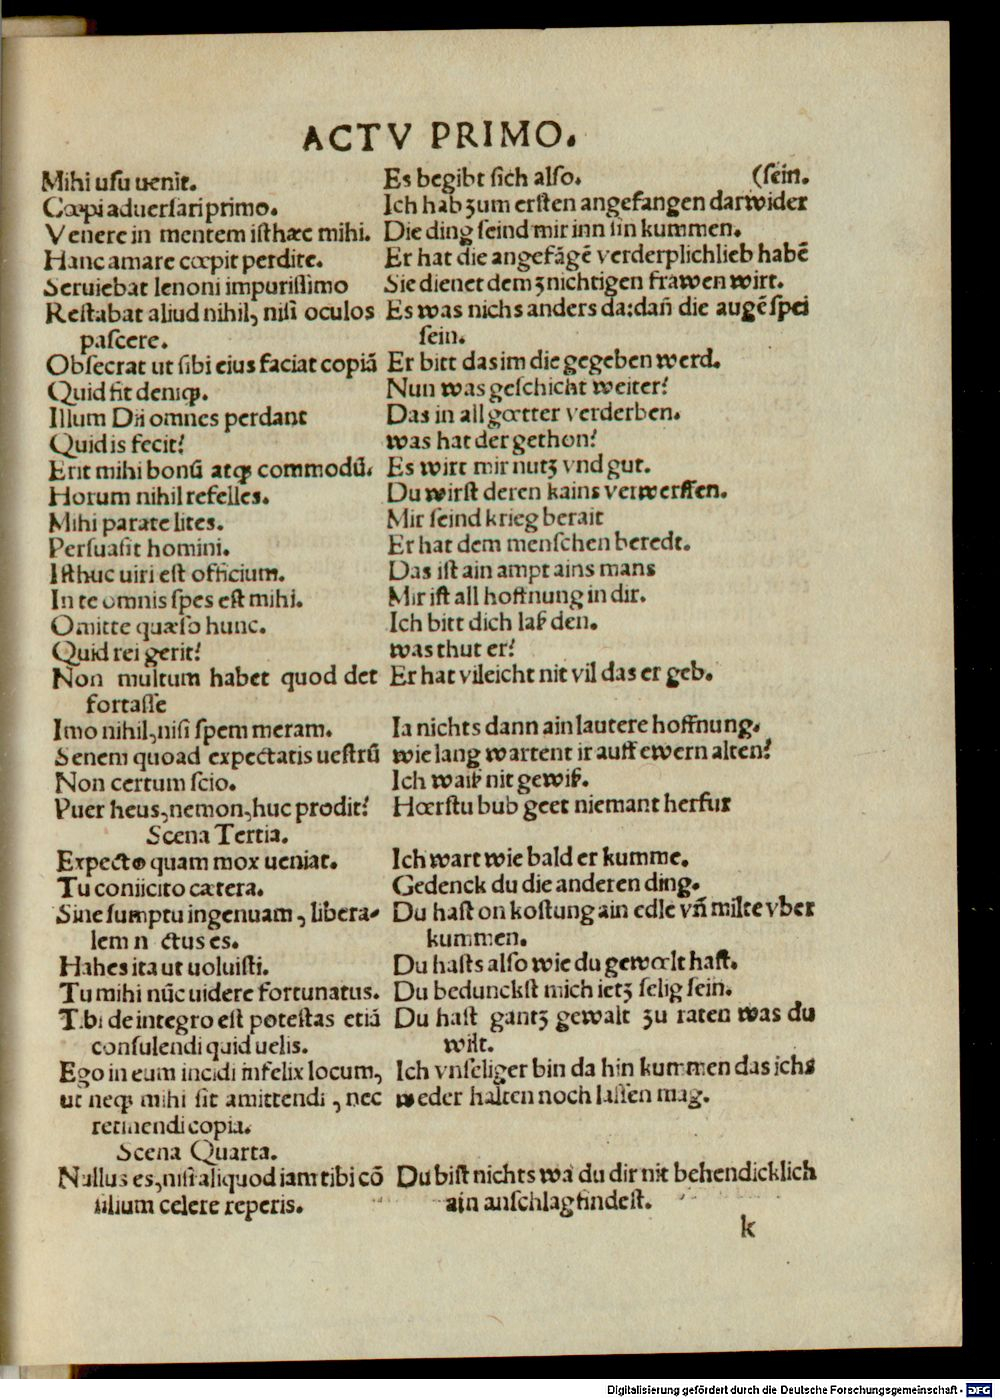 ACTV PRIMO.
Mihi uſu uenit. Es begibt ſich alſo. (ſein.
Cœpi aduerſari primo. Ich hab zum erſten angefangen darwider
Venere in mentem iſthæc mihi. Die ding ſeind mir inn ſin kummen.
Hanc amare cœpit perdite. Er hat die angefãgẽ verderplichlieb habẽ
Seruiebat lenoni impuriſſimo Sie dienet dem znichtigen frawen wirt.
Reſtabat aliud nihil, niſi oculos Es was nichs anders da: dañ die augẽ ſpei
paſcere. ſein.
Obſecrat ut ſibi eius faciat copiã Er bitt das im die gegeben werd.
Quid fit deniqꝫ. Nun was geſchicht weiter?
Illum Dii omnes perdant Das in all gœtter verderben.
Quid is fecit? was hat der gethon?
Erit mihi bonũ atqꝫ commodũ. Es wirt mir nutz vnd gut.
Horum nihil refelles. Du wirſt deren kains verwerffen.
Mihi paratę lites. Mir ſeind krieg berait
Perſuaſit homini. Er hat dem menſchen beredt.
Iſthuc uiri eſt officium. Das iſt ain ampt ains mans
In te omnis ſpes eſt mihi. Mir iſt all hoffnung in dir.
Omitte quæſo hunc. Ich bitt dich laß den.
Quid rei gerit? was thut er?
Non multum habet quod det Er hat vileicht nit vil das er geb.
fortaſſe
Imo nihil, niſi ſpem meram. Ia nichts dann ain lautere hoffnung.
Senem quoad expectatis ueſtrũ wie lang wartent ir auff ewern alten?
Non certum ſcio. Ich waiß nit gewiß.
Puer heus, nemon, huc prodit? Hœrſtu bub geet niemant herfur
Scena Tertia.
Expecto quam mox ueniat. Ich wart wie bald er kumme.
Tu coniicito cætera. Gedenck du die anderen ding.
Sine ſumptu ingenuam, libera- Du haſt on koſtung ain edle vñ milte vber
lem n ctus es. kummen.
Habes ita ut uoluiſti. Du haſts alſo wie du gewœlt haſt.
Tu mihi nũc uidere fortunatus. Du bedunckſt mich ietz ſelig ſein.
Tibi de integro eſt poteſtas etiã Du haſt gantz gewalt zu raten was du
conſulendi quid uelis. wilt.
Ego in eum incidi infelix locum, Ich vnſeliger bin da hin kummen das ichs
ut neqꝫ mihi ſit amittendi, nec weder halten noch laſſen mag.
retinendi copia.
Scena Quarta.
Nullus es, niſi aliquod iam tibi cõ Du biſt nichts wa du dir nit behendicklich
ſilium celere reperis. ain anſchlag findeſt.
k
Digitalisierung gefördert durch die Deutsche Forschungsgemeinschaft - DFG